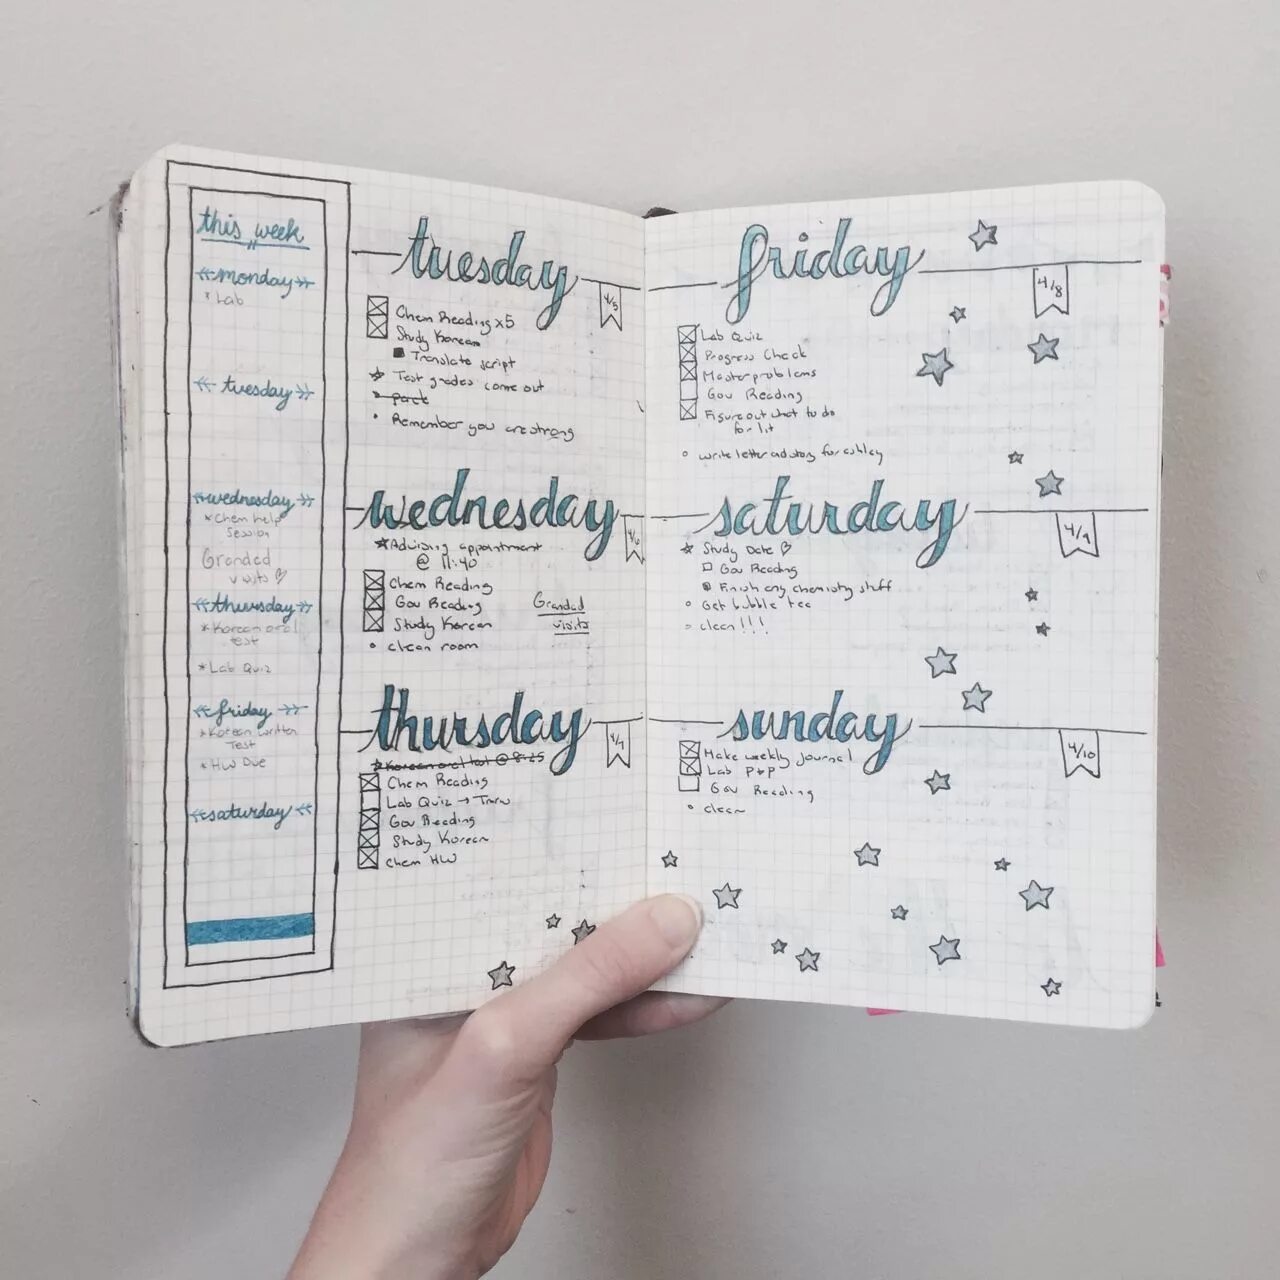 this week
monday
* Lab
tuesday
wednesday
* Chem help
session
Grandad
visits ♡
thursday
* Korean oral
test
* Lab Quiz
friday
* Korean written
Test
* HW Due
saturday
tuesday
4/5
Chem Reading x5
Study Korean
Translate script
Test grades come out
pack
Remember you are strong
wednesday
4/6
Advising appointment
@ 11:40
Chem Reading
Gov Reading
Study Korean
clean room
Grandad
visits
thursday
4/7
Korean oral test @ 8:25
Chem Reading
Lab Quiz →
Gov Reading
Study Korean
Chem HW
friday
4/8
Lab Quiz
Progress Check
Master problems
Gov Reading
Figure out what to do
for lit
write letter and story for ashley
saturday
4/9
Study Date ♡
Gov Reading
Finish any chemistry stuff
Get bubble tea
clean!!!
sunday
4/10
Make weekly journal
Lab P+P
Gov Reading
clean